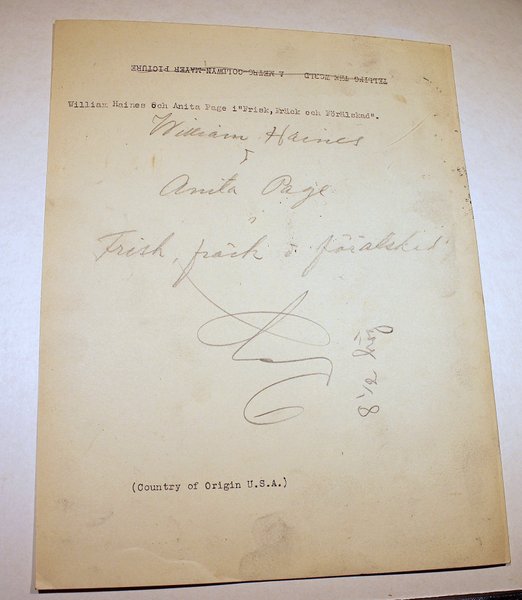 TELLING THE WORLD A METRO-GOLDWYN-MAYER PICTURE
William Haines och Anita Page i"Frisk,Fräck och Förälskad".
William Haines
Anita Page
i
Frisk, fräck o förälskad
8 1/2
(Country of Origin U.S.A.)